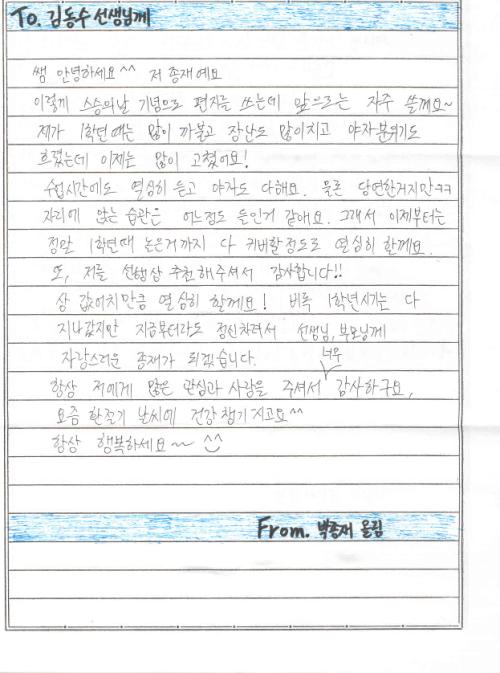 To. 김동수 선생님께
쌤 안녕하세요^^ 저 종재예요
이렇게 스승의날 기념으로 편지를 쓰는데 앞으로는 자주 쓸께요~
제가 1학년때는 많이 까불고 장난도 많이치고 야자분위기도
흐렸는데 이제는 많이 고쳤어요!
수업시간에도 열심히 듣고 야자도 다해요. 물론 당연한거지만ㅋㅋ
자리에 앉는 습관은 어느정도 들인거 같애요. 그래서 이제부터는
정말 1학년때 논은거까지 다 커버할정도로 열심히 할께요.
또, 저를 선행상 추천해주셔서 감사합니다!!
상 값어치만큼 열심히 할께요! 비록 1학년시기는 다
지나갔지만 지금부터라도 정신차려서 선생님, 부모님께
자랑스러운 종재가 되겠습니다.
항상 저에게 많은 관심과 사랑을 주셔서 너무 감사하구요,
요즘 환절기 날씨에 건강 챙기시고요^^
항상 행복하세요~ ^^
From. 박종재 올림